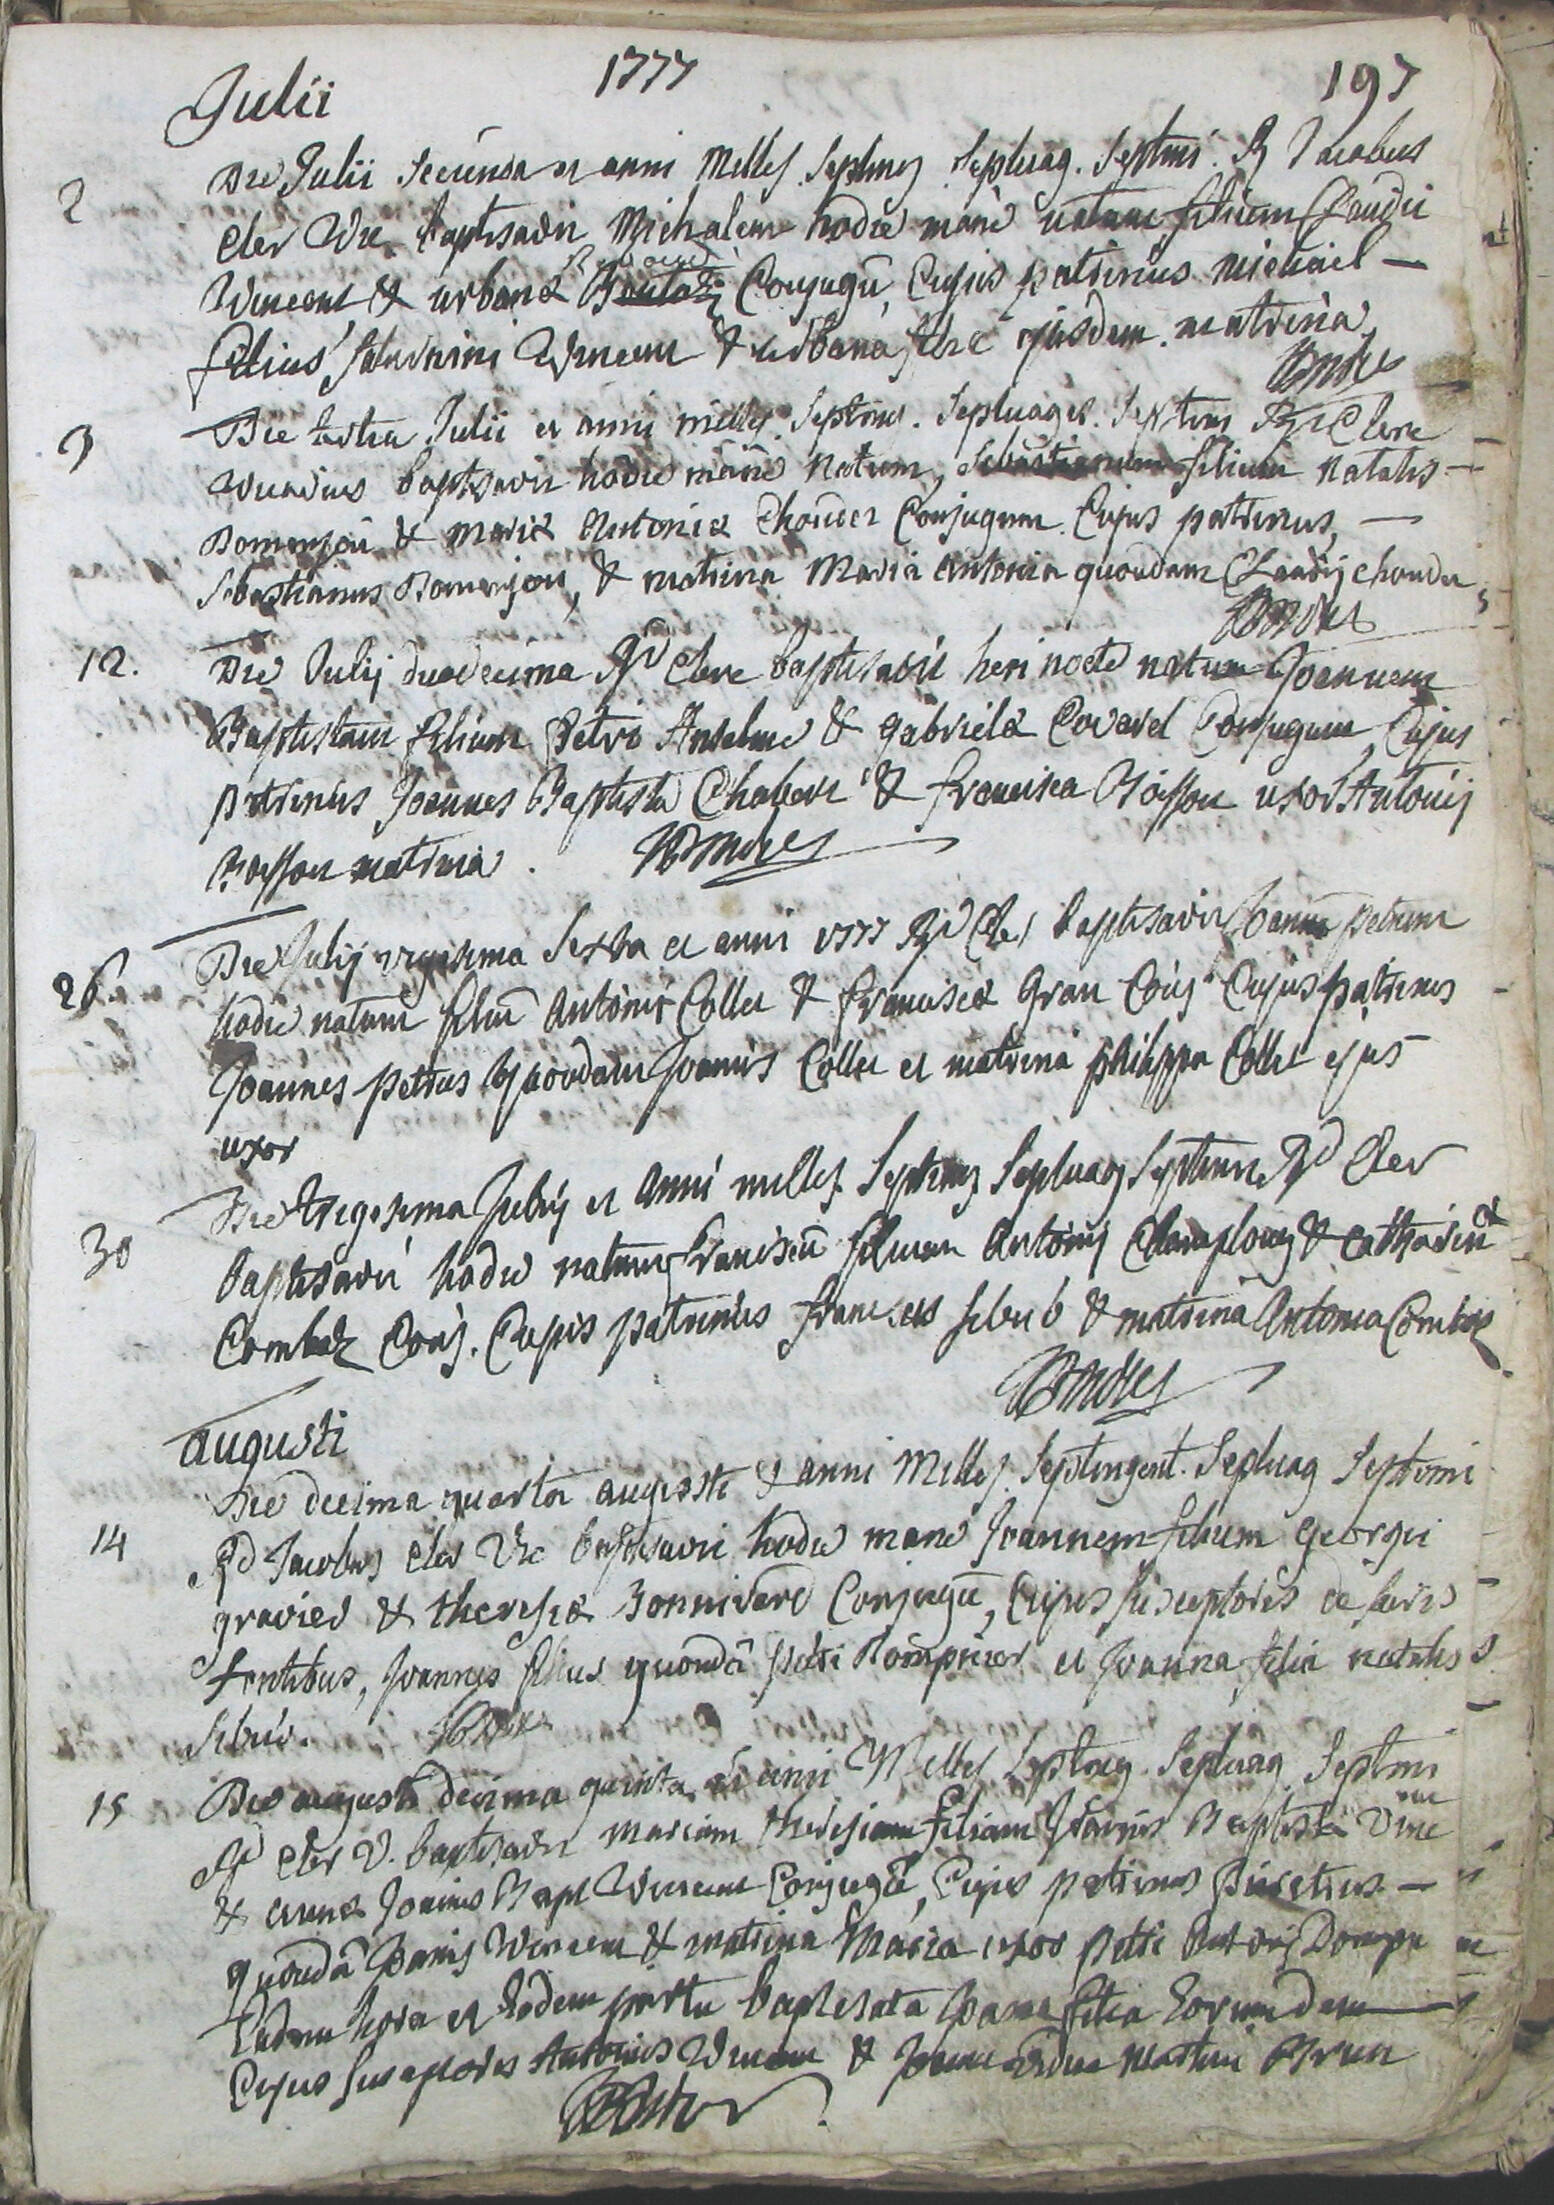 1777
197
Julii
2 Die Julii secunda et anni Milles. Septing. Septuag. Septimi. Jacobus
Cler Vic. baptisavi Michalem hodie mané natum filium Claudii
Vincent & urbanæ Conjugū, Cujus patrinus Michael —
filius Saturnini Vincent & urbana ejusdem. matrina,
3 Die tertia Julii et anni milles. Septing. Septuages. Septimi Clere
vicarius baptisavi hodie mané natum, Sebastianum filium natalis —
Domenjon & mariæ Antoniæ Chouder Conjugum. Cujus patrinus, —
Sebastianus Domenjon, & matrina Maria antonia quondam Claudij chouder,
12. Die Julij duodecima Clere baptisavi heri nocte natum Joannem
Baptistam filium Petri Anselme & gabrielæ Covarel Conjugum, Cujus
patrinus Joannes Baptista Chaberi & francisca Boisson uxor Antonij
Boisson matrina.
26. Die Julij vigesima Sexta et anni 1777 Cler baptisavi Joannē petrum
hodie natum filiū Antonij Collet & franciscæ Gran Conj. Cujus patrinus
Joannes petrus quondam Joannis Collet et matrina philippa Collet ejus
uxor
30 Die trigesima Julij et Anni milles. Septing Septuag Septimi Cler
baptisavi hodie natum franciscū filium Antonij & Catharinæ
Combaz Conj. Cujus patrinus & matrina Antonia Combaz
augusti
14 Die decima quarta augusti & anni Milles. Septingent. Septuag Septimi
Jacobus Cler Vic baptisavi hodie mane Joannem filium Georgii
gravier & theresiæ Bonnivard Conjugū, Cujus susceptores de sacris
fontibus, Joannes filius quondā petri Rompnier et Joanna filia natalis
15 Die augusti decima quinta et anni Milles Septing. Septuag. Septimi
Cler V. baptisavi mariam theresiam filiam Joannis Baptistæ Vincent
& annæ Joannis Bapt Vincent Conjugū, Cujus patrinus —
quondā Joannis Vincent & matrina Maria uxor petri
Eadem hora et Eodem partu baptisata Joanna filia Eorumdem —
Cujus susceptores Antonius Vincent & Martini Brun